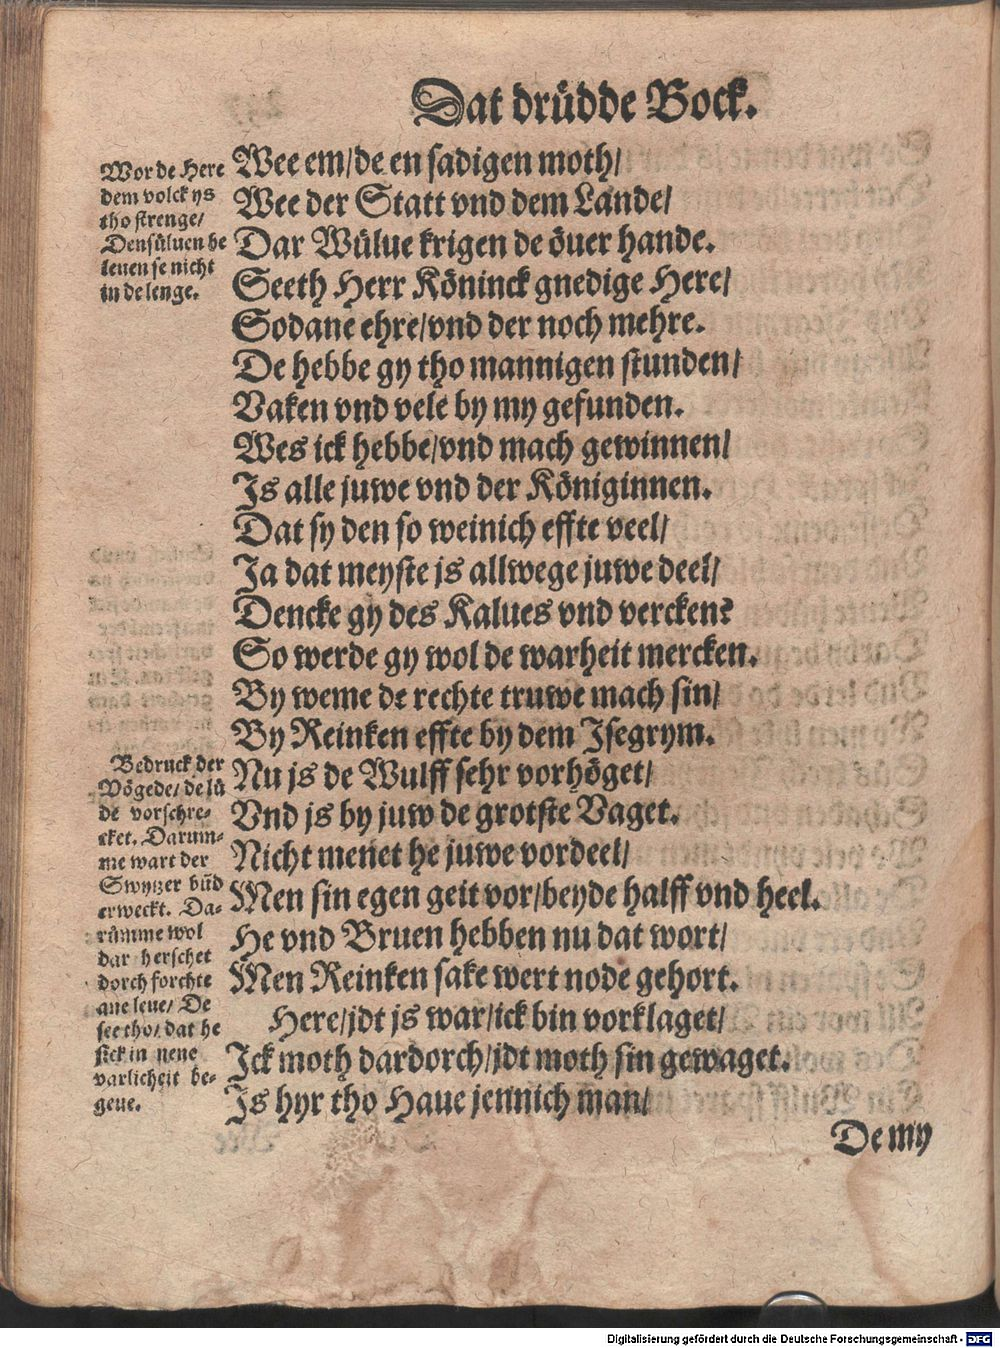 Dat drüdde Bock.
Wor de Here
dem volck ys
tho strenge/
Densüluen be
leuen se nicht
in de lenge.
Wee em/de en sadigen moth/
Wee der Statt vnd dem Lande/
Dar Wülue krigen de öuer hande.
Seeth Herr Köninck gnedige Here/
Sodane ehre/vnd der noch mehre.
De hebbe gy tho mannigen stunden/
Vaken vnd vele by my gefunden.
Wes ick hebbe/vnd mach gewinnen/
Is alle juwe vnd der Königinnen.
Dat sy den so weinich effte veel/
Ja dat meyste is allwege juwe deel/
Dencke gy des Kalues vnd vercken?
So werde gy wol de warheit mercken.
By weme de rechte truwe mach sin/
By Reinken effte by dem Isegrym.
Bedruck der
Vögede/ de lü
de vorschre-
cket. Darum-
me wart der
Swytzer bũd
erweckt. Da-
rümme wol
dar herschet
dorch forchte
ane leue/ De
see tho/ dat he
sick in nene
varlicheit be-
geue.
Nu js de Wulff sehr vorhöget/
Vnd js by juw de grotste Vaget.
Nicht menet he juwe vordeel/
Men sin egen geit vor/beyde halff vnd heel.
He vnd Bruen hebben nu dat wort/
Men Reinken sake wert node gehort.
Here/jdt js war/ick bin vorklaget/
Ick moth dardorch/jdt moth sin gewaget.
Is hyr tho Haue jennich man/
De my
Digitalisierung gefördert durch die Deutsche Forschungsgemeinschaft - DFG